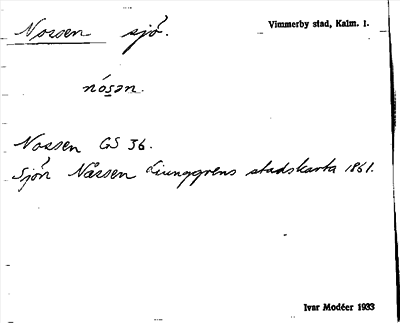 Nossen sjö.
Vimmerby stad, Kalm. l.
nósən.
Nossen GS 36.
Sjön Nåssen Ljunggrens stadskarta 1861.
Ivar Modéer 1933